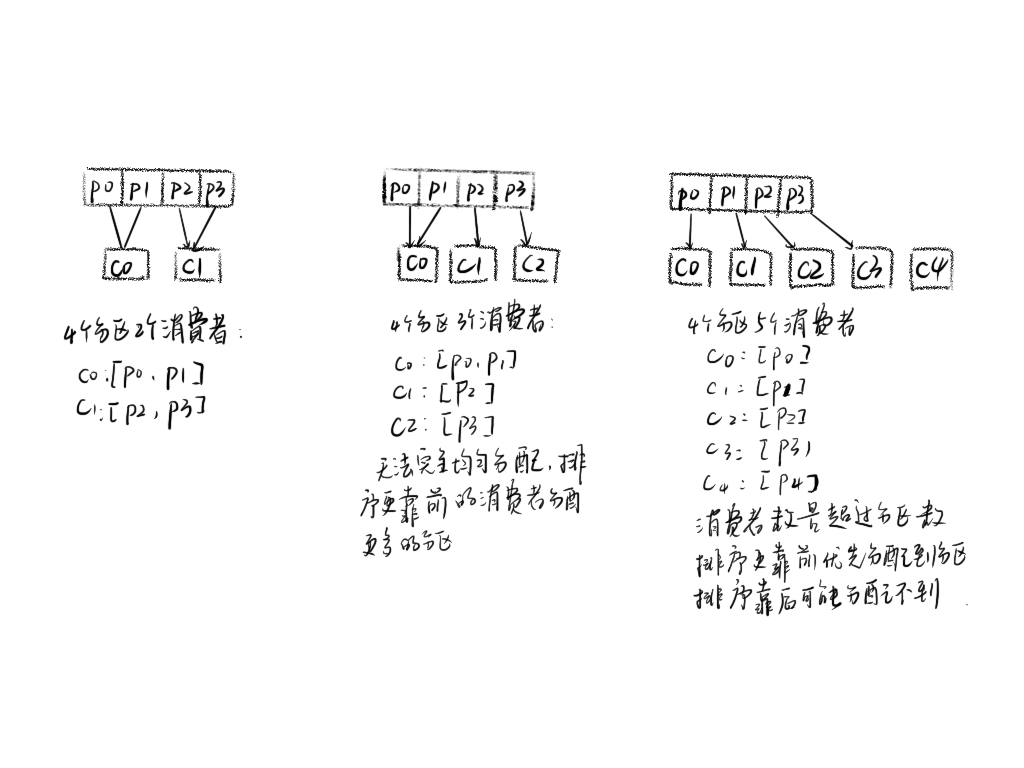 p0 p1 p2 p3
C0 C1
4个分区2个消费者:
C0:[P0, P1]
C1:[P2, P3]
p0 p1 p2 p3
C0 C1 C2
4个分区3个消费者:
C0:[P0,P1]
C1:[P2]
C2:[P3]
无法完全均匀分配,排
序更靠前的消费者分配
更多的分区
p0 p1 p2 p3
C0 C1 C2 C3 C4
4个分区5个消费者
C0:[P0]
C1:[P1]
C2:[P2]
C3:[P3)
C4:[P4]
消费者数量超过分区数
排序更靠前优先分配到分区
排序靠后可能分配不到